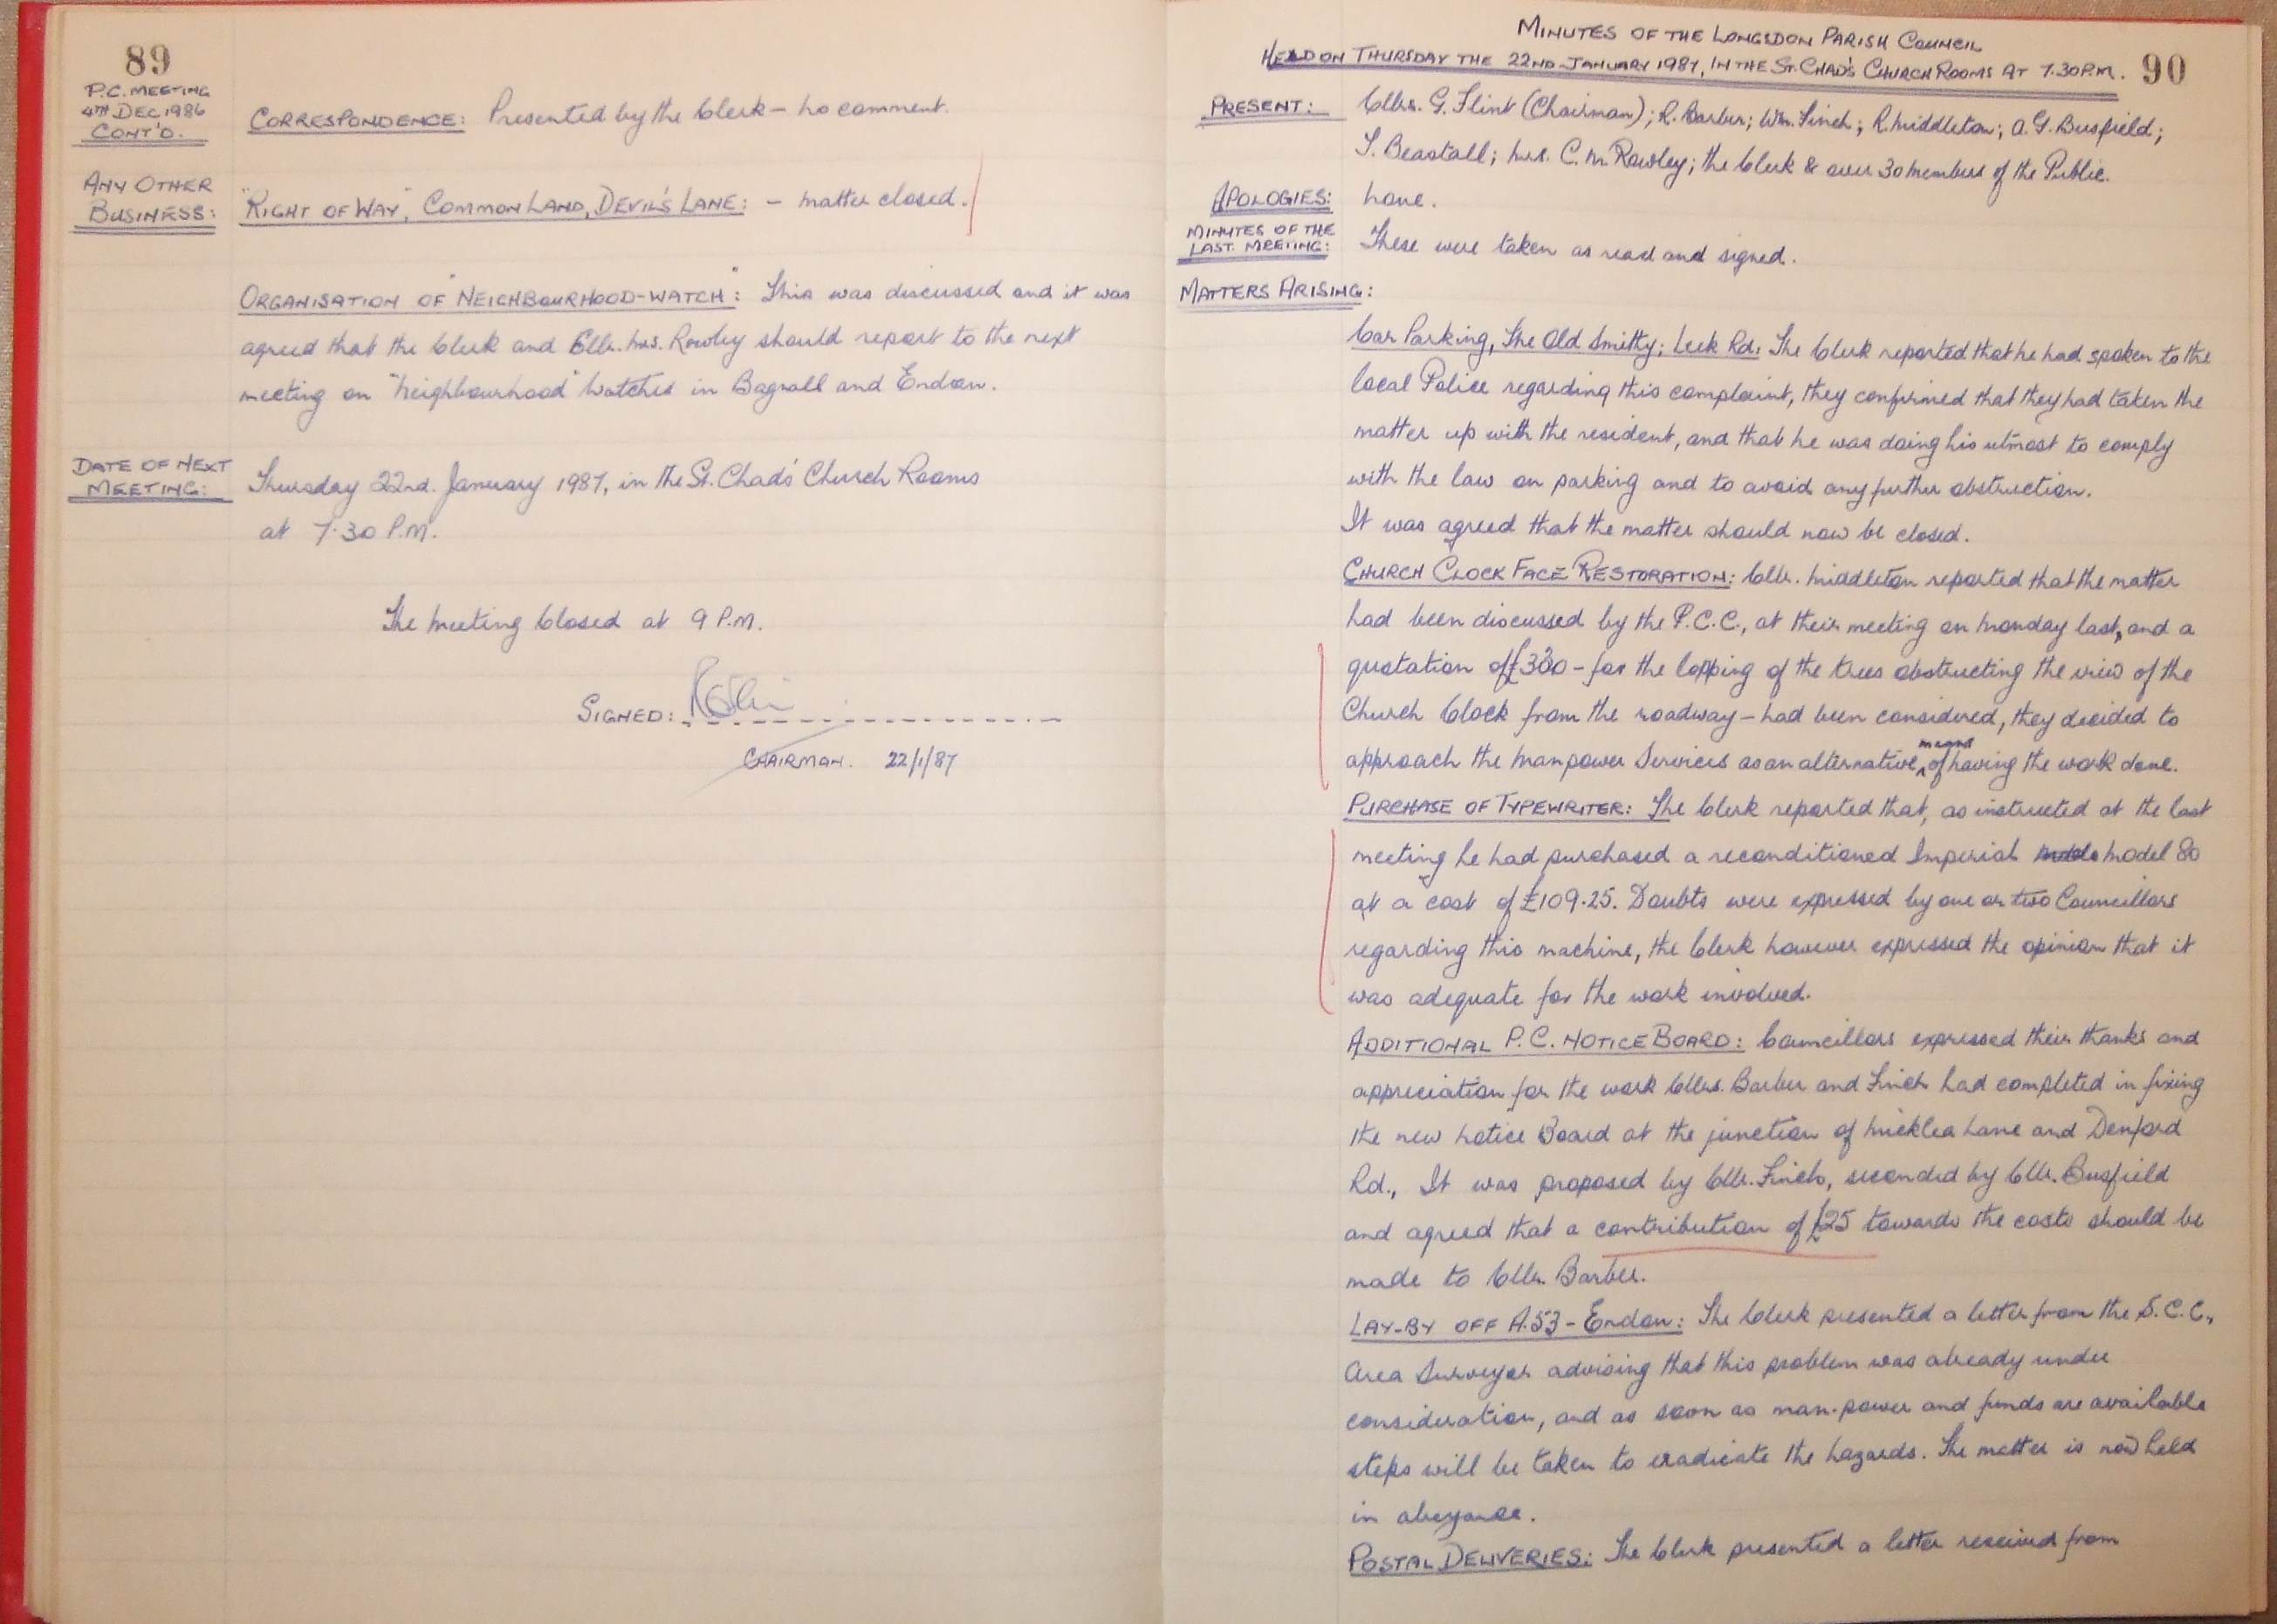 89
P.C. MEETING
4TH DEC 1986
CONT'D.
CORRESPONDENCE: Presented by the Clerk – no comment.
ANY OTHER
BUSINESS:
"RIGHT OF WAY", COMMON LAND, DEVIL'S LANE: – matter closed.
ORGANISATION OF "NEIGHBOURHOOD-WATCH": This was discussed and it was
agreed that the Clerk and Cllr. Mrs. Rowley should report to the next
meeting on "Neighbourhood" Watches in Bagnall and Endon.
DATE OF NEXT
MEETING:
Thursday 22nd. January 1987, in the St. Chad's Church Rooms
at 7.30 P.M.
The Meeting Closed at 9 P.M.
SIGNED:
CHAIRMAN. 22/1/87
MINUTES OF THE LONGSDON PARISH COUNCIL
HELD ON THURSDAY THE 22ND JANUARY 1987, IN THE ST. CHAD'S CHURCH ROOMS AT 7.30 P.M. 90
PRESENT: Cllrs. G. Flint (Chairman); R. Barber; Wm. Finch; R. Middleton; A.G. Busfield;
T. Beastall; Mrs. C.M. Rowley; the Clerk & over 30 members of the Public.
APOLOGIES: None.
MINUTES OF THE
LAST MEETING: These were taken as read and signed.
MATTERS ARISING:
Car Parking, The Old Smithy; Leek Rd: The Clerk reported that he had spoken to the
local Police regarding this complaint, they confirmed that they had taken the
matter up with the resident, and that he was doing his utmost to comply
with the law on parking and to avoid any further obstruction.
It was agreed that the matter should now be closed.
CHURCH CLOCK FACE RESTORATION: Cllr. Middleton reported that the matter
had been discussed by the P.C.C., at their meeting on Monday last, and a
quotation of – for the lopping of the trees obstructing the view of the
Church Clock from the roadway – had been considered, they decided to
approach the Manpower Services as an alternative means of having the work done.
PURCHASE OF TYPEWRITER: The Clerk reported that, as instructed at the last
meeting he had purchased a reconditioned Imperial Model 80
at a cost of £109.25. Doubts were expressed by one or two Councillors
regarding this machine, the Clerk however expressed the opinion that it
was adequate for the work involved.
ADDITIONAL P.C. NOTICE BOARD: Councillors expressed their thanks and
appreciation for the work Cllrs. Barber and Finch had completed in fixing
the new Notice Board at the junction of Micklea Lane and Denford
Rd., It was proposed by Cllr. Finch, seconded by Cllr. Busfield
and agreed that a contribution of £25 towards the costs should be
made to Cllr. Barber.
LAY-BY OFF A.53 – Endon: The Clerk presented a letter from the S.C.C.,
Area Surveyor advising that this problem was already under
consideration, and as soon as man-power and funds are available
steps will be taken to eradicate the hazards. The matter is now held
in abeyance.
POSTAL DELIVERIES: The Clerk presented a letter received from